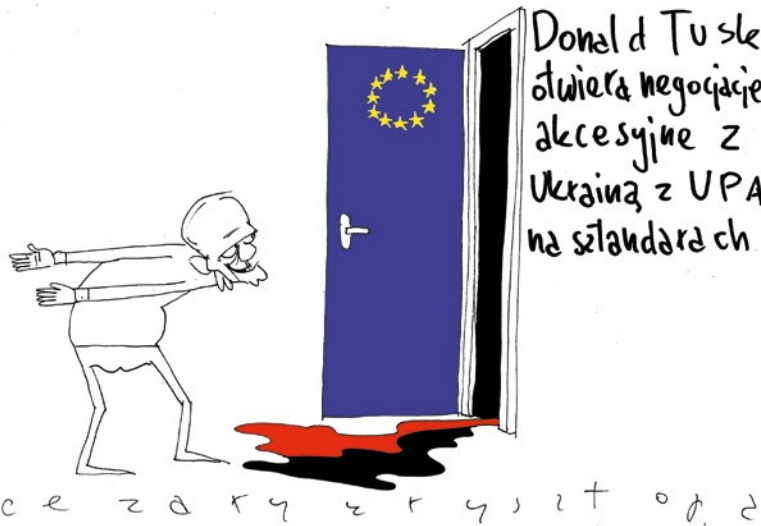 Donald Tusk
otwiera negocjacje
akcesyjne z
Ukrainą z UPA
na sztandarach
cezary krysztopa